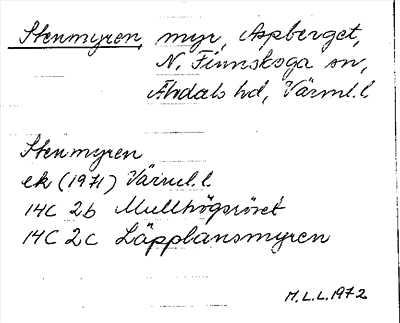 Stenmyren, myr, Aspberget,
N. Finnskoga sn,
Älvdals hd, Värml. l
Stenmyren
ek (1971) Värml. l.
14C 2b Mullhögsröset
14C 2c Läpplansmyren
M.L.L. 1972